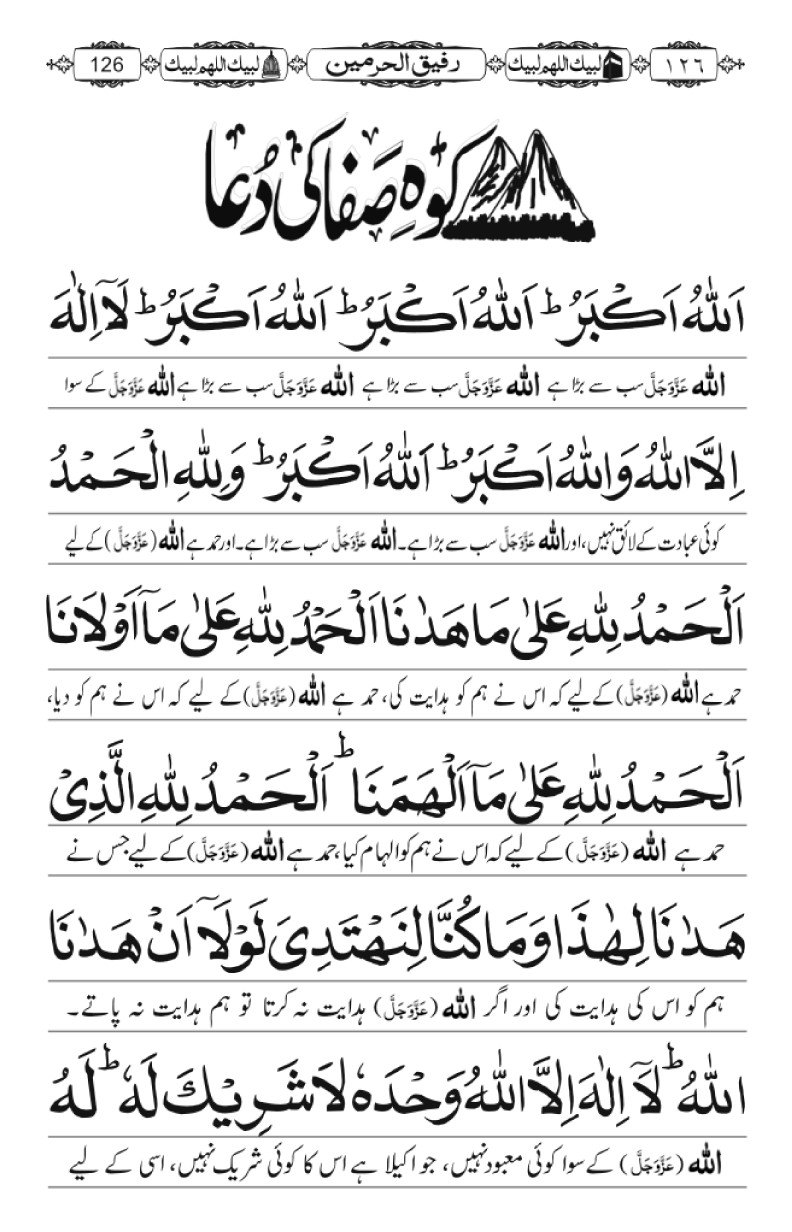 ١٢٦ لبيك اللهم لبيك رفيق الحرمين لبيك اللهم لبيك 126
کوہِ صَفا کی دُعا
اَللّٰهُ اَكْبَرُ ؕ اَللّٰهُ اَكْبَرُ ؕ اَللّٰهُ اَكْبَرُ ؕ لَاۤ اِلٰهَ
اللہ عَزَّوَجَلَّ سب سے بڑا ہے اللہ عَزَّوَجَلَّ سب سے بڑا ہے اللہ عَزَّوَجَلَّ سب سے بڑا ہے اللہ عَزَّوَجَلَّ کے سوا
اِلَّا اللّٰهُ وَاللّٰهُ اَكْبَرُ ؕ اَللّٰهُ اَكْبَرُ ؕ وَلِلّٰهِ الْحَمْدُ
کوئی عبادت کے لائق نہیں، اور اللہ عَزَّوَجَلَّ سب سے بڑا ہے۔ اللہ عَزَّوَجَلَّ سب سے بڑا ہے۔ اور حمد ہے اللہ (عَزَّوَجَلَّ) کے لیے
اَلْحَمْدُ لِلّٰهِ عَلٰى مَا هَدٰنَا اَلْحَمْدُ لِلّٰهِ عَلٰى مَاۤ اَوْلَانَا
حمد ہے اللہ (عَزَّوَجَلَّ) کے لیے کہ اس نے ہم کو ہدایت کی، حمد ہے اللہ (عَزَّوَجَلَّ) کے لیے کہ اس نے ہم کو دیا،
اَلْحَمْدُ لِلّٰهِ عَلٰى مَاۤ اَلْهَمَنَا ؕ اَلْحَمْدُ لِلّٰهِ الَّذِىْ
حمد ہے اللہ (عَزَّوَجَلَّ) کے لیے کہ اس نے ہم کو الہام کیا، حمد ہے اللہ (عَزَّوَجَلَّ) کے لیے جس نے
هَدٰنَا لِهٰذَا وَمَا كُنَّا لِنَهْتَدِىَ لَوْلَاۤ اَنْ هَدٰنَا
ہم کو اس کی ہدایت کی اور اگر اللہ (عَزَّوَجَلَّ) ہدایت نہ کرتا تو ہم ہدایت نہ پاتے۔
اللّٰهُ ؕ لَاۤ اِلٰهَ اِلَّا اللّٰهُ وَحْدَهٗ لَا شَرِيْكَ لَهٗ ؕ لَهُ
اللہ (عَزَّوَجَلَّ) کے سوا کوئی معبود نہیں، جو اکیلا ہے اس کا کوئی شریک نہیں، اسی کے لیے